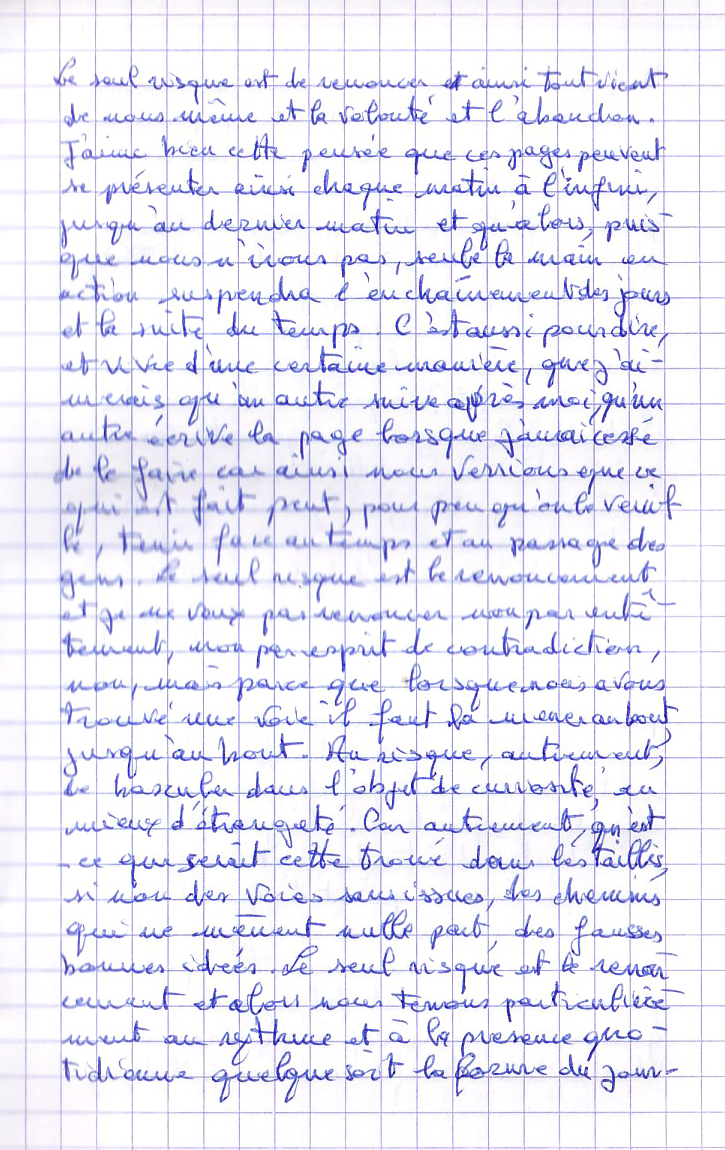 Le seul risque est de renoncer et ainsi tout vient
de nous même et la volonté et l'abandon.
J'aime bien cette pensée que ces pages peuvent
se présenter ainsi chaque matin à l'infini,
jusqu'au dernier matin et qu'alors, puis
que nous n'irons pas, seule la main en
action suspendra l'enchaînement des jours
et la suite du temps. C'est aussi pour dire,
et vivre d'une certaine manière, que j'ai-
merais qu'un autre suive après moi, qu'un
autre écrive la page lorsque j'aurai cessé
de le faire car ainsi nous verrions que ce
qui est fait peut, pour peu qu'on le veuil
le, tenir face au temps et au passage des
gens. Le seul risque est le renoncement
et je ne veux pas renoncer non par entê-
tement, non par esprit de contradiction,
non, mais parce que lorsque nous avons
trouvé une voie il faut la mener au bout,
jusqu'au bout. Au risque, autrement,
de basculer dans l'objet de curiosité, au
mieux d'étrangeté. Car autrement, qu'est
-ce que serait cette trouvé dans les taillis,
si non des voies sans issues, des chemins
qui ne mènent nulle part, des fausses
bonnes idées. Le seul risque est le renon
cement et alors nous tenons particulière-
ment au rythme et à la présence quo-
tidienne quelque soit la forme du jour-